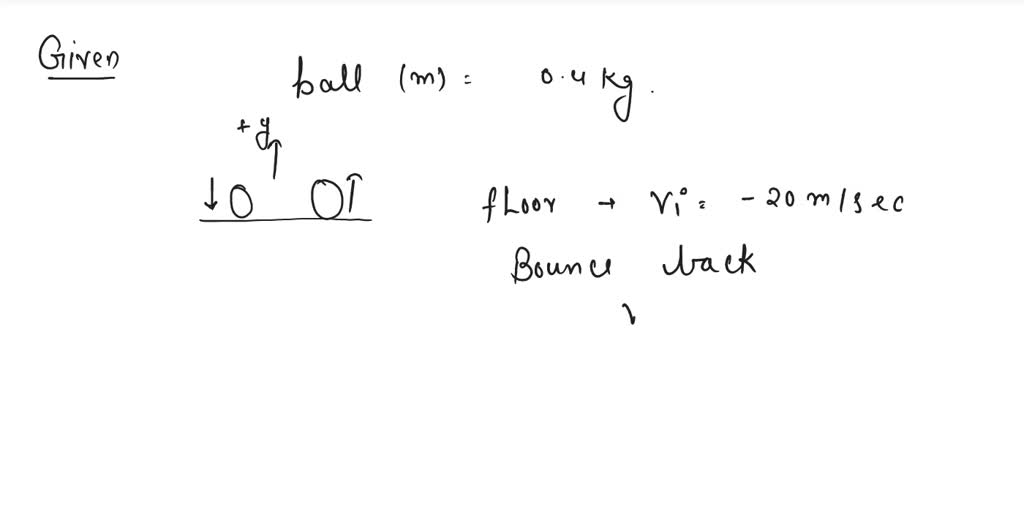 Given
ball (m) = 0.4 kg.
+y
floor → vi = -20 m/sec
Bounce back